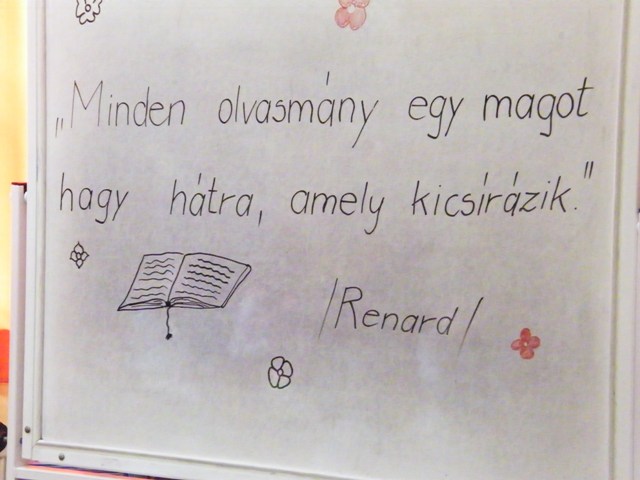 „Minden olvasmány egy magot
hagy hátra, amely kicsírázik."
/Renard/